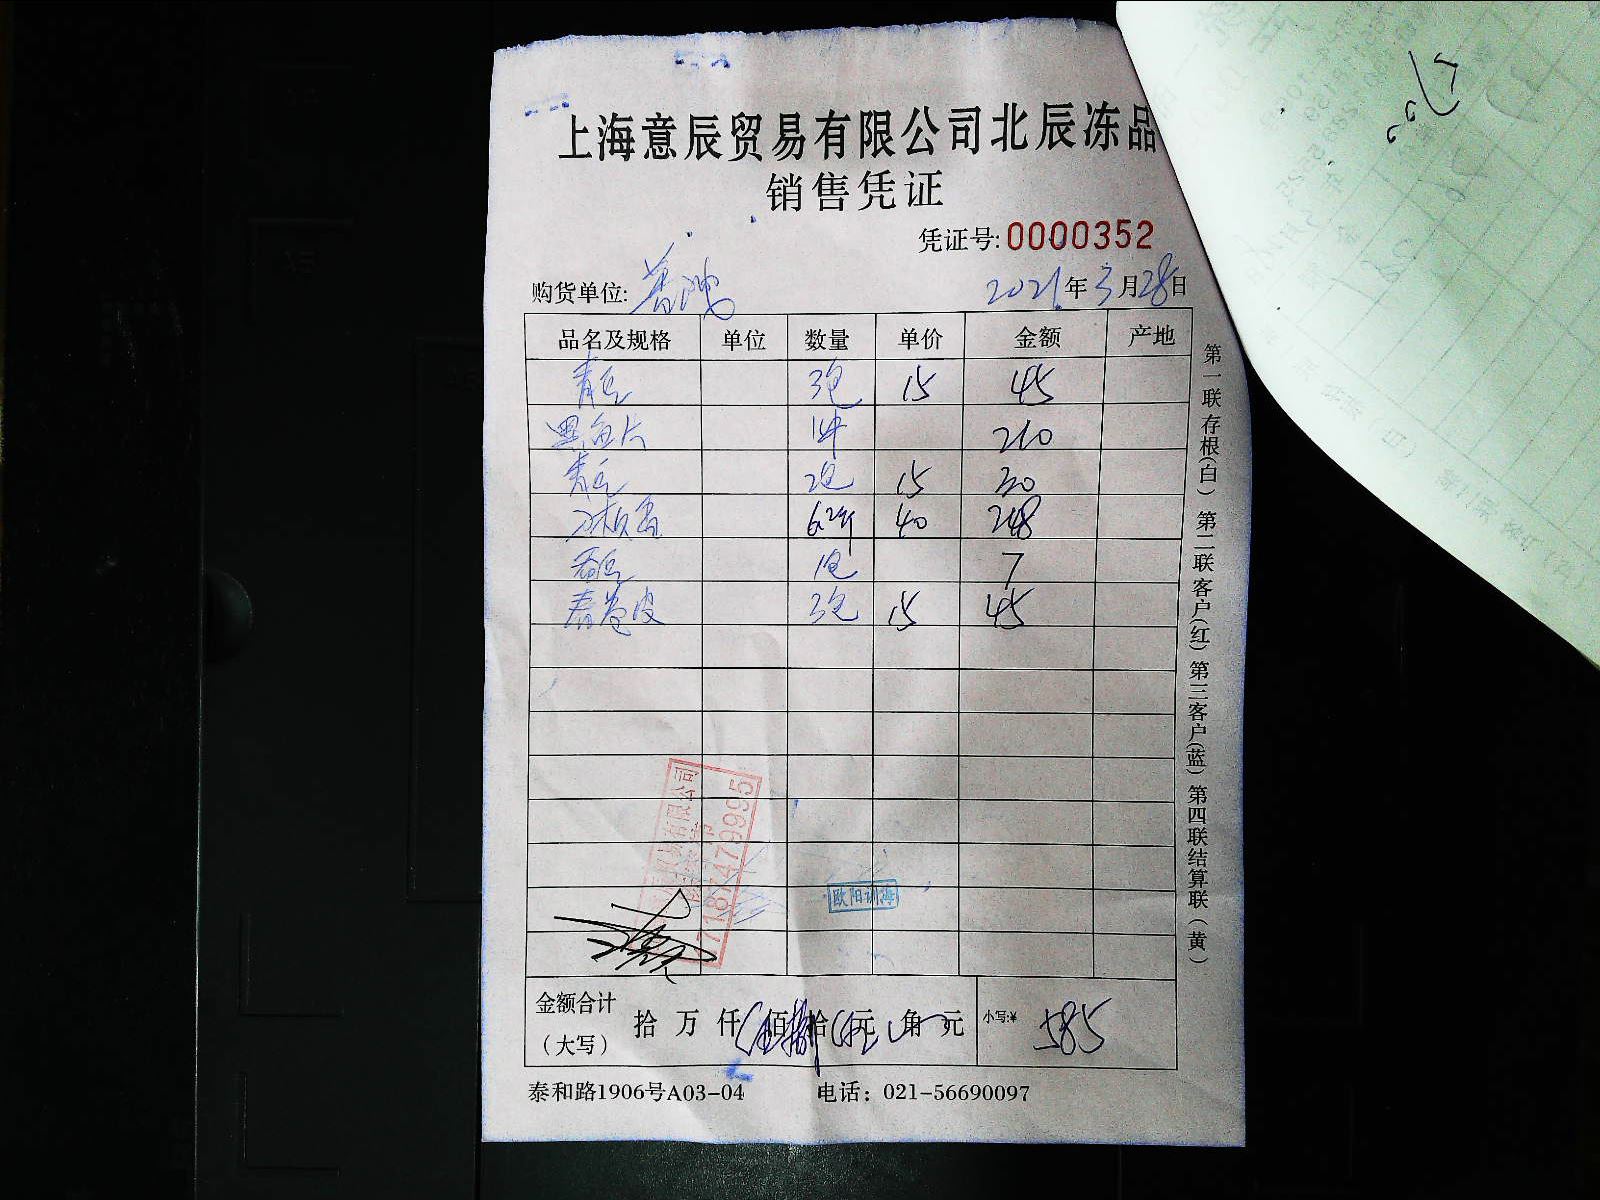 上海意辰贸易有限公司北辰冻品
销售凭证
凭证号:0000352
购货单位:
2021年3月28日
品名及规格 单位 数量 单价 金额 产地
青豆 3包 15 45
黑鱼片 1件 210
青豆 2包 15 30
6.2斤 40 248
1包 7
春卷皮 3包 15 45
第一联存根(白) 第二联客户(红) 第三客户(蓝) 第四联结算联(黄)
有限公司
欧阳训海
金额合计(大写) 拾 万 仟 佰 拾 元 角 元 小写:¥ 585
泰和路1906号A03-04 电话：021-56690097